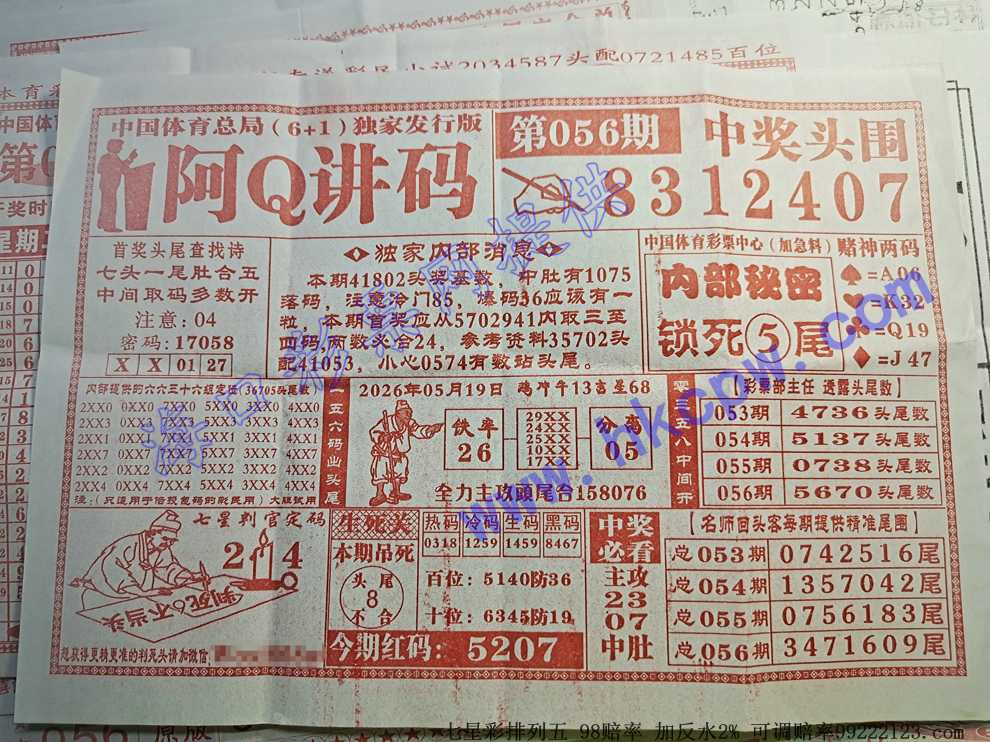 本育彩
中国体
小试2034587头配0721485百位
中国体育总局(6+1)独家发行版
阿Q讲码
第056期
中奖头围
8312407
首奖头尾查找诗
七头一尾肚合五
中间取码多数开
注意:04
密码:17058
X X 01 27
独家内部消息
本期41802头奖基数,中肚有1075
落码,注意冷门85,爆码36应该有一
粒,本期首奖应从5702941内取三至
四码,两数头合24,参考资料35702头
配41053,小心0574有数站头尾。
中国体育彩票中心(加急料)
内部秘密
锁死5尾
赌神两码
♠=A06
♥=K32
♣=Q19
♦=J47
内部提供的六六三十六组定位(36705路尾数)
2XX0 0XX0 7XX0 5XX0 3XX0 4XX0
2XX3 0XX3 7XX3 5XX3 3XX3 4XX3
2XX1 0XX1 7XX1 5XX1 3XX1 4XX1
2XX7 0XX7 7XX7 5XX7 3XX7 4XX7
2XX2 0XX2 7XX2 5XX2 3XX2 4XX2
2XX4 0XX4 7XX4 5XX4 3XX4 4XX4
注:(只适用于倍投包码的彩民用)大胆试用
一五六码出头尾
2026年05月19日 鸡忤午13吉星68
铁率
26
29XX
24XX
25XX
10XX
17XX
分离
05
全力主攻頭尾合158076
零三五八中间开
【彩票部主任 透露头尾数】
053期 4736头尾数
054期 5137头尾数
055期 0738头尾数
056期 5670头尾数
七星判官定码
2 4
判死6不当头
想获得更精更准的判死头请加微信
生死关
本期吊死
头尾
8
不合
热码 冷码 生码 黑码
0318 1259 1459 8467
百位:5140防36
十位:6345防19
今期红码:5207
中奖
必看
主攻
23
07
中肚
【名师回头客每期提供精准尾围】
总053期 0742516尾
总054期 1357042尾
总055期 0756183尾
总056期 3471609尾
www.hkcpw.com
056 原版
七星彩排列五 98赔率 加反水2% 可调赔率99222123.com